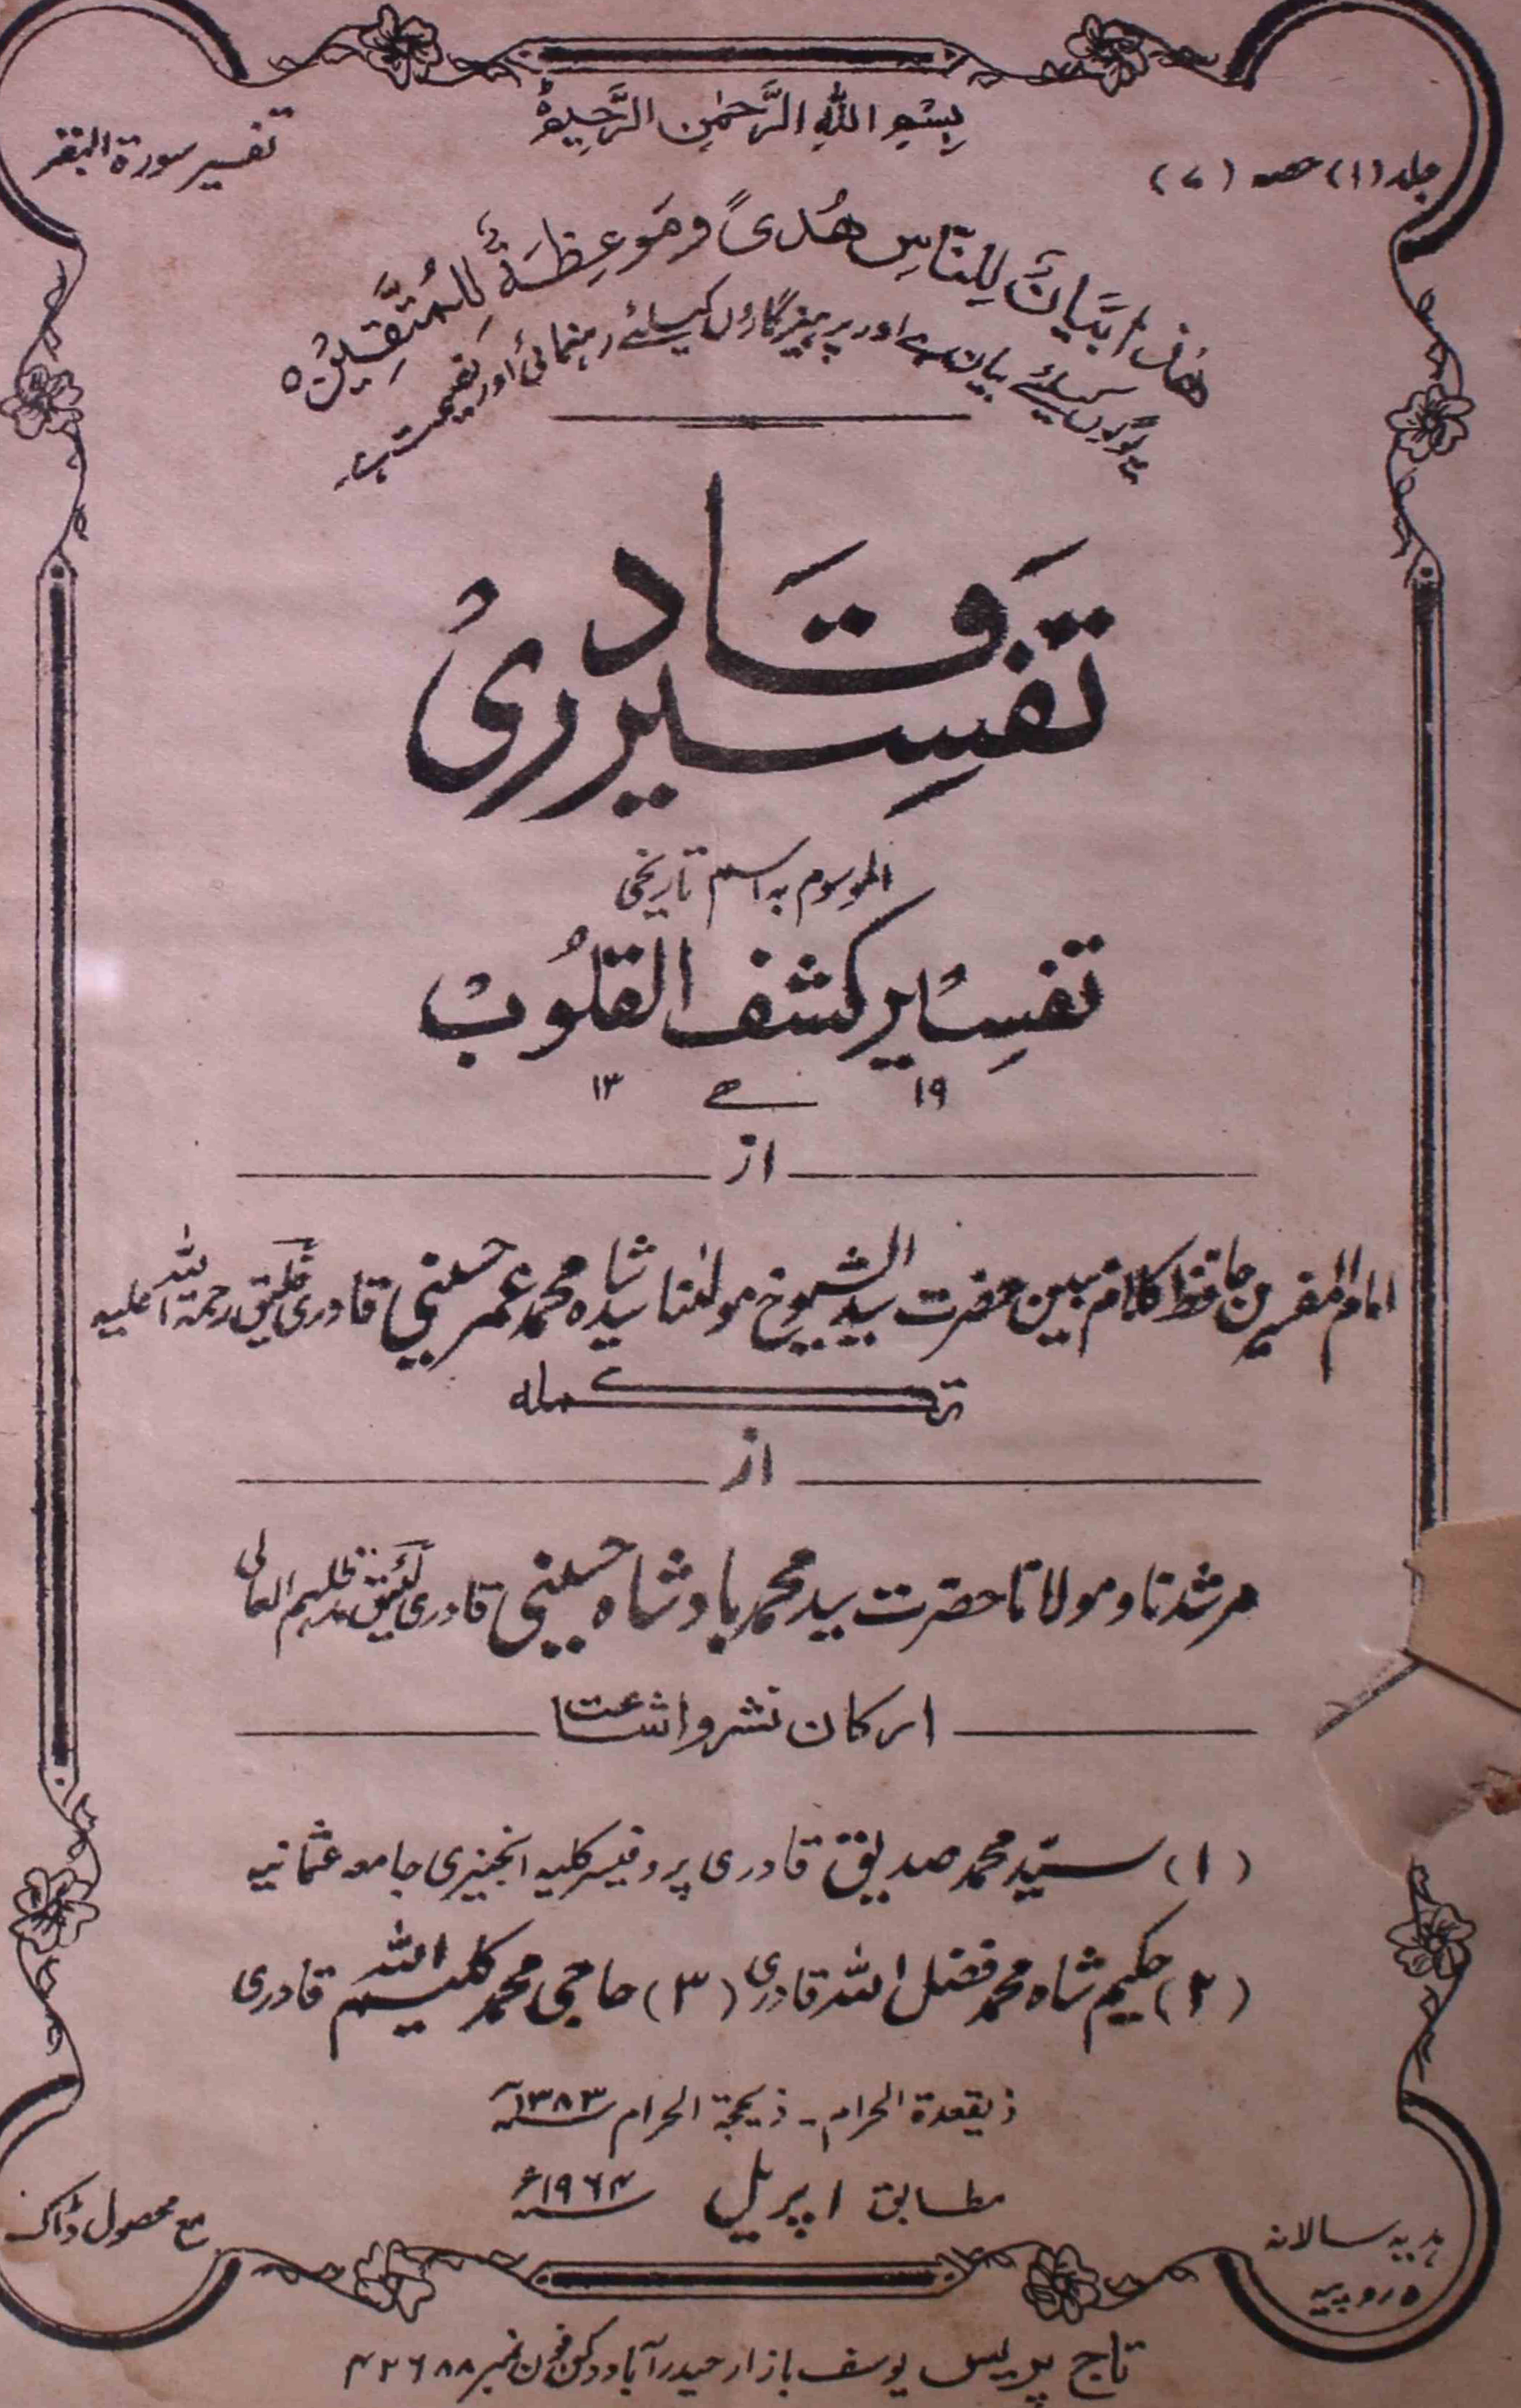 بِسْمِ اللهِ الرَّحْمٰنِ الرَّحِيْمِ
جلد (۱) حصہ (۷)
تفسیر سورۃ البقر
هٰذَا بَيَانٌ لِلنَّاسِ هُدًى وَمَوْعِظَةٌ لِّلْمُتَّقِيْنَ ۝
یہ لوگوں کیلئے بیان ہے اور پرہیزگاروں کیلئے رہنمائی اور نصیحت ہے۔
تَفسِیر قَادری
الموسوم بہ اسم تاریخی
تفسِیر کشف القلُوب
۱۹ ــے ۱۳
از
امام المفسرین حافظ کلام مبین حضرت سید الشیوخ مولٰنا سید شاہ محمد عمر حسینی قادری خلیق رحمۃ اللہ علیہ
تکملہ
از
مرشدنا و مولانا حضرت سید محمد بادشاہ حسینی قادری لئیق مدظلہم العالی
ارکان نشر و اشاعت
(۱) سیّد محمد صدیق قادری پروفیسر کلیہ انجینیری جامعہ عثمانیہ
(۲) حکیم شاہ محمد فضل اللہ قادری (۳) حاجی محمد کلیم اللہ قادری
ذیقعدۃ الحرام ۔ ذیحجۃ الحرام ۱۳۸۳ھ
مطابق اپریل ۱۹۶۴ء
ہدیہ سالانہ
۵ روپیہ
مع محصول ڈاک
تاج پریس یوسف بازار حیدرآباد دکن فون نمبر ۴۲۶۸۸